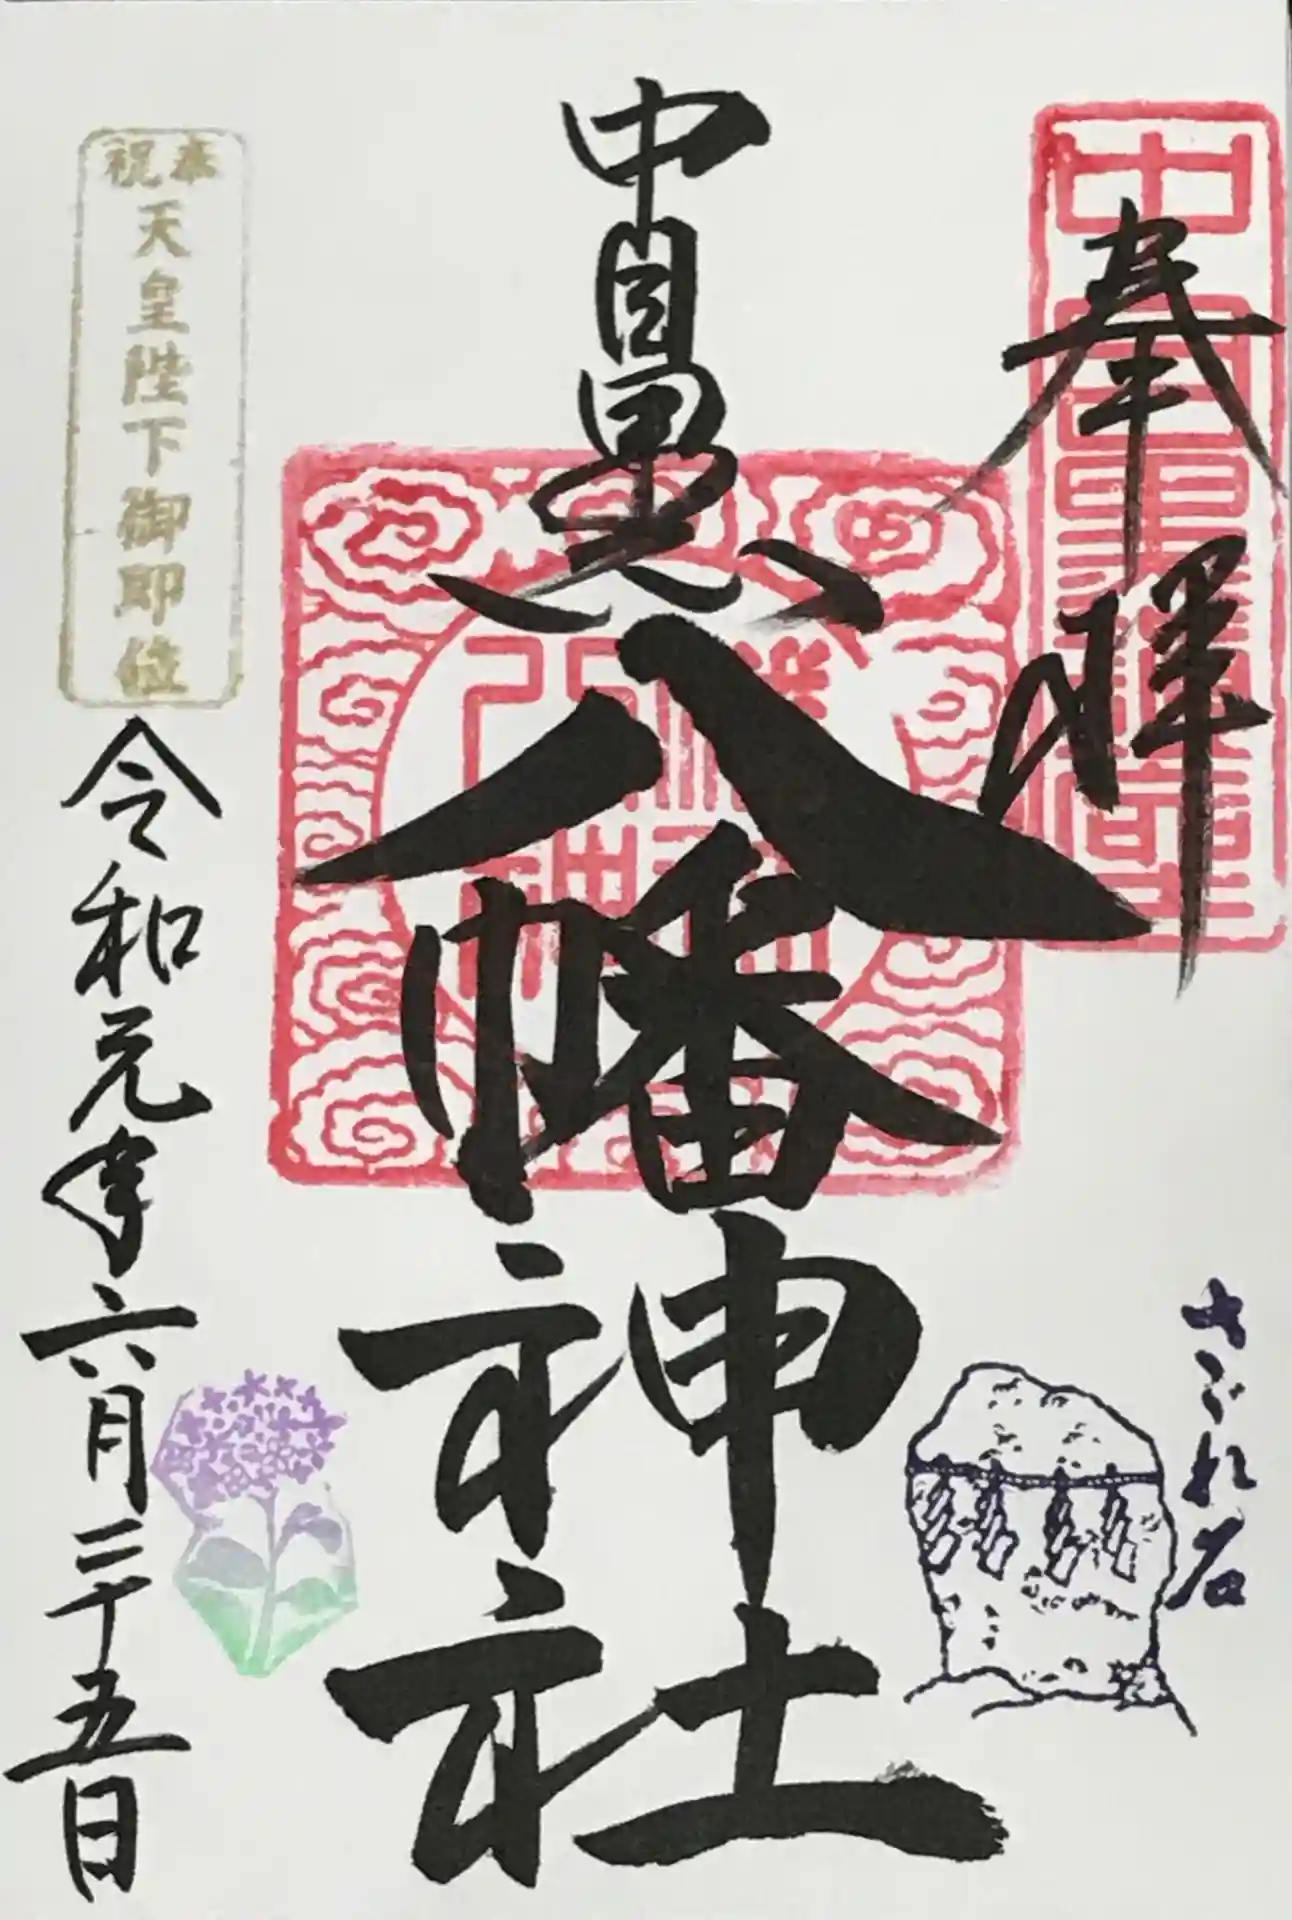 奉拝
さゞれ石
中目黒
八幡神社
奉祝
天皇陛下御即位
令和元年六月二十五日